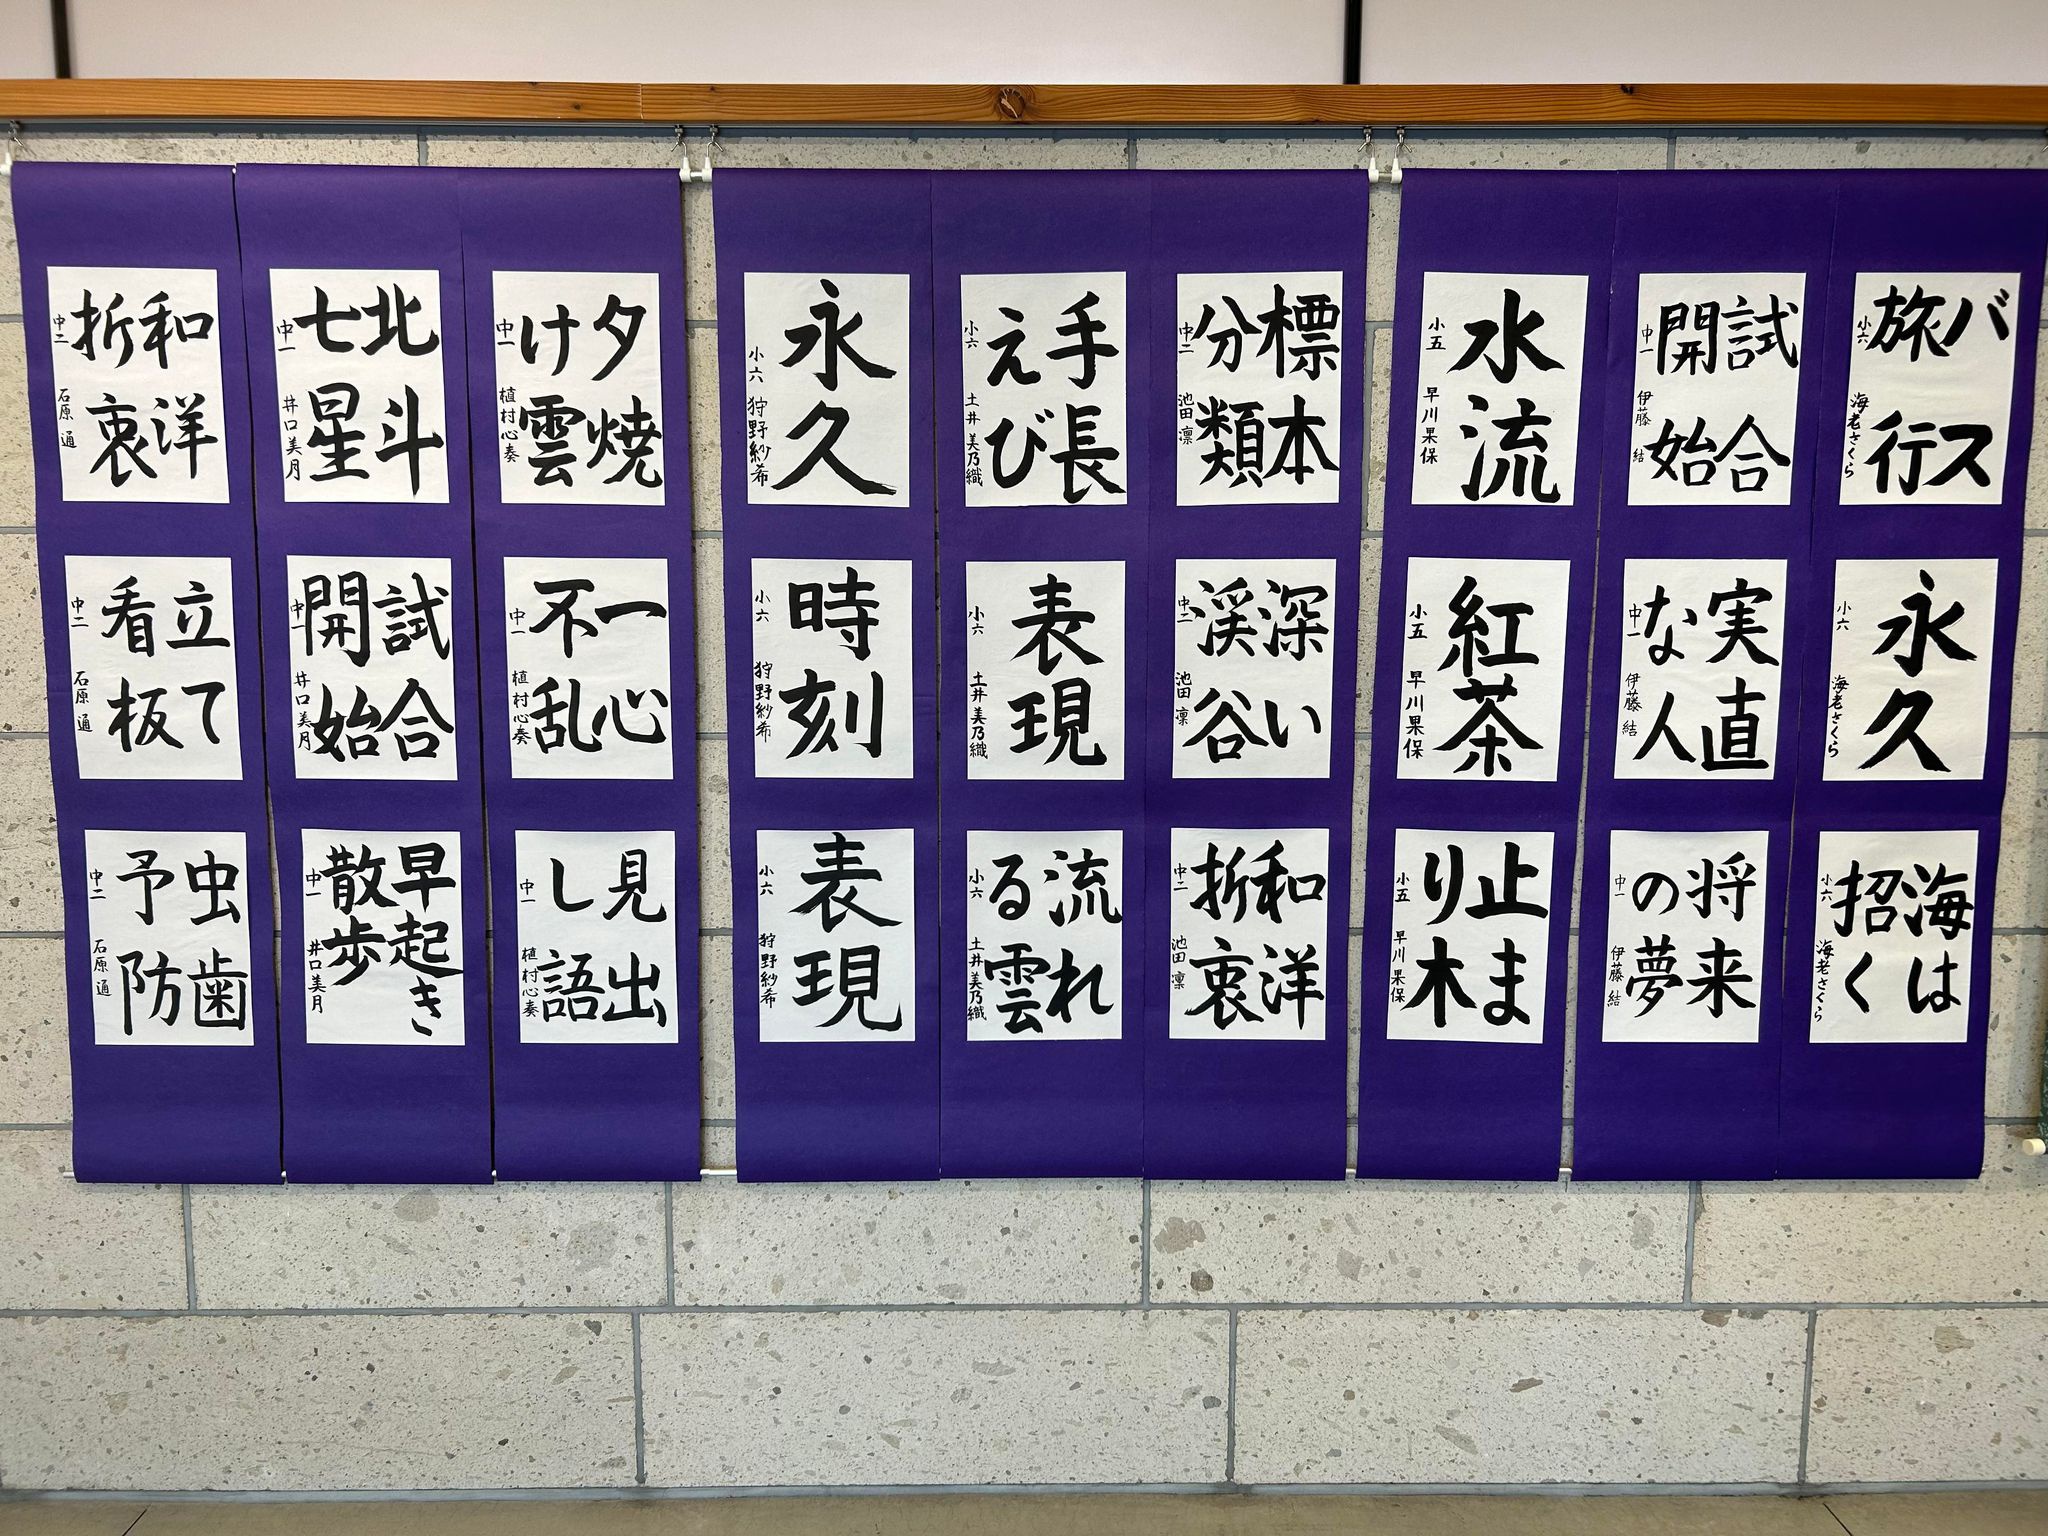 バス
旅行
小六 海老さくら
永久
小六 海老さくら
海は
招く
小六 海老さくら
試合
開始
中一 伊藤 結
実直
な人
中一 伊藤 結
将来
の夢
中一 伊藤 結
水流
小五 早川果保
紅茶
小五 早川果保
止ま
り木
小五 早川果保
標本
分類
中二 池田 凛
深い
渓谷
中二 池田 凛
和洋
折衷
中二 池田 凛
手長
えび
小六 土井美乃織
表現
小六 土井美乃織
流れ
る雲
小六 土井美乃織
永久
小六 狩野紗希
時刻
小六 狩野紗希
表現
小六 狩野紗希
夕焼
け雲
中一 植村心奏
一心
不乱
中一 植村心奏
見出
し語
中一 植村心奏
北斗
七星
中一 井口美月
試合
開始
中一 井口美月
早起き
散歩
中一 井口美月
和洋
折衷
中二 石原 通
立て
看板
中二 石原 通
虫歯
予防
中二 石原 通